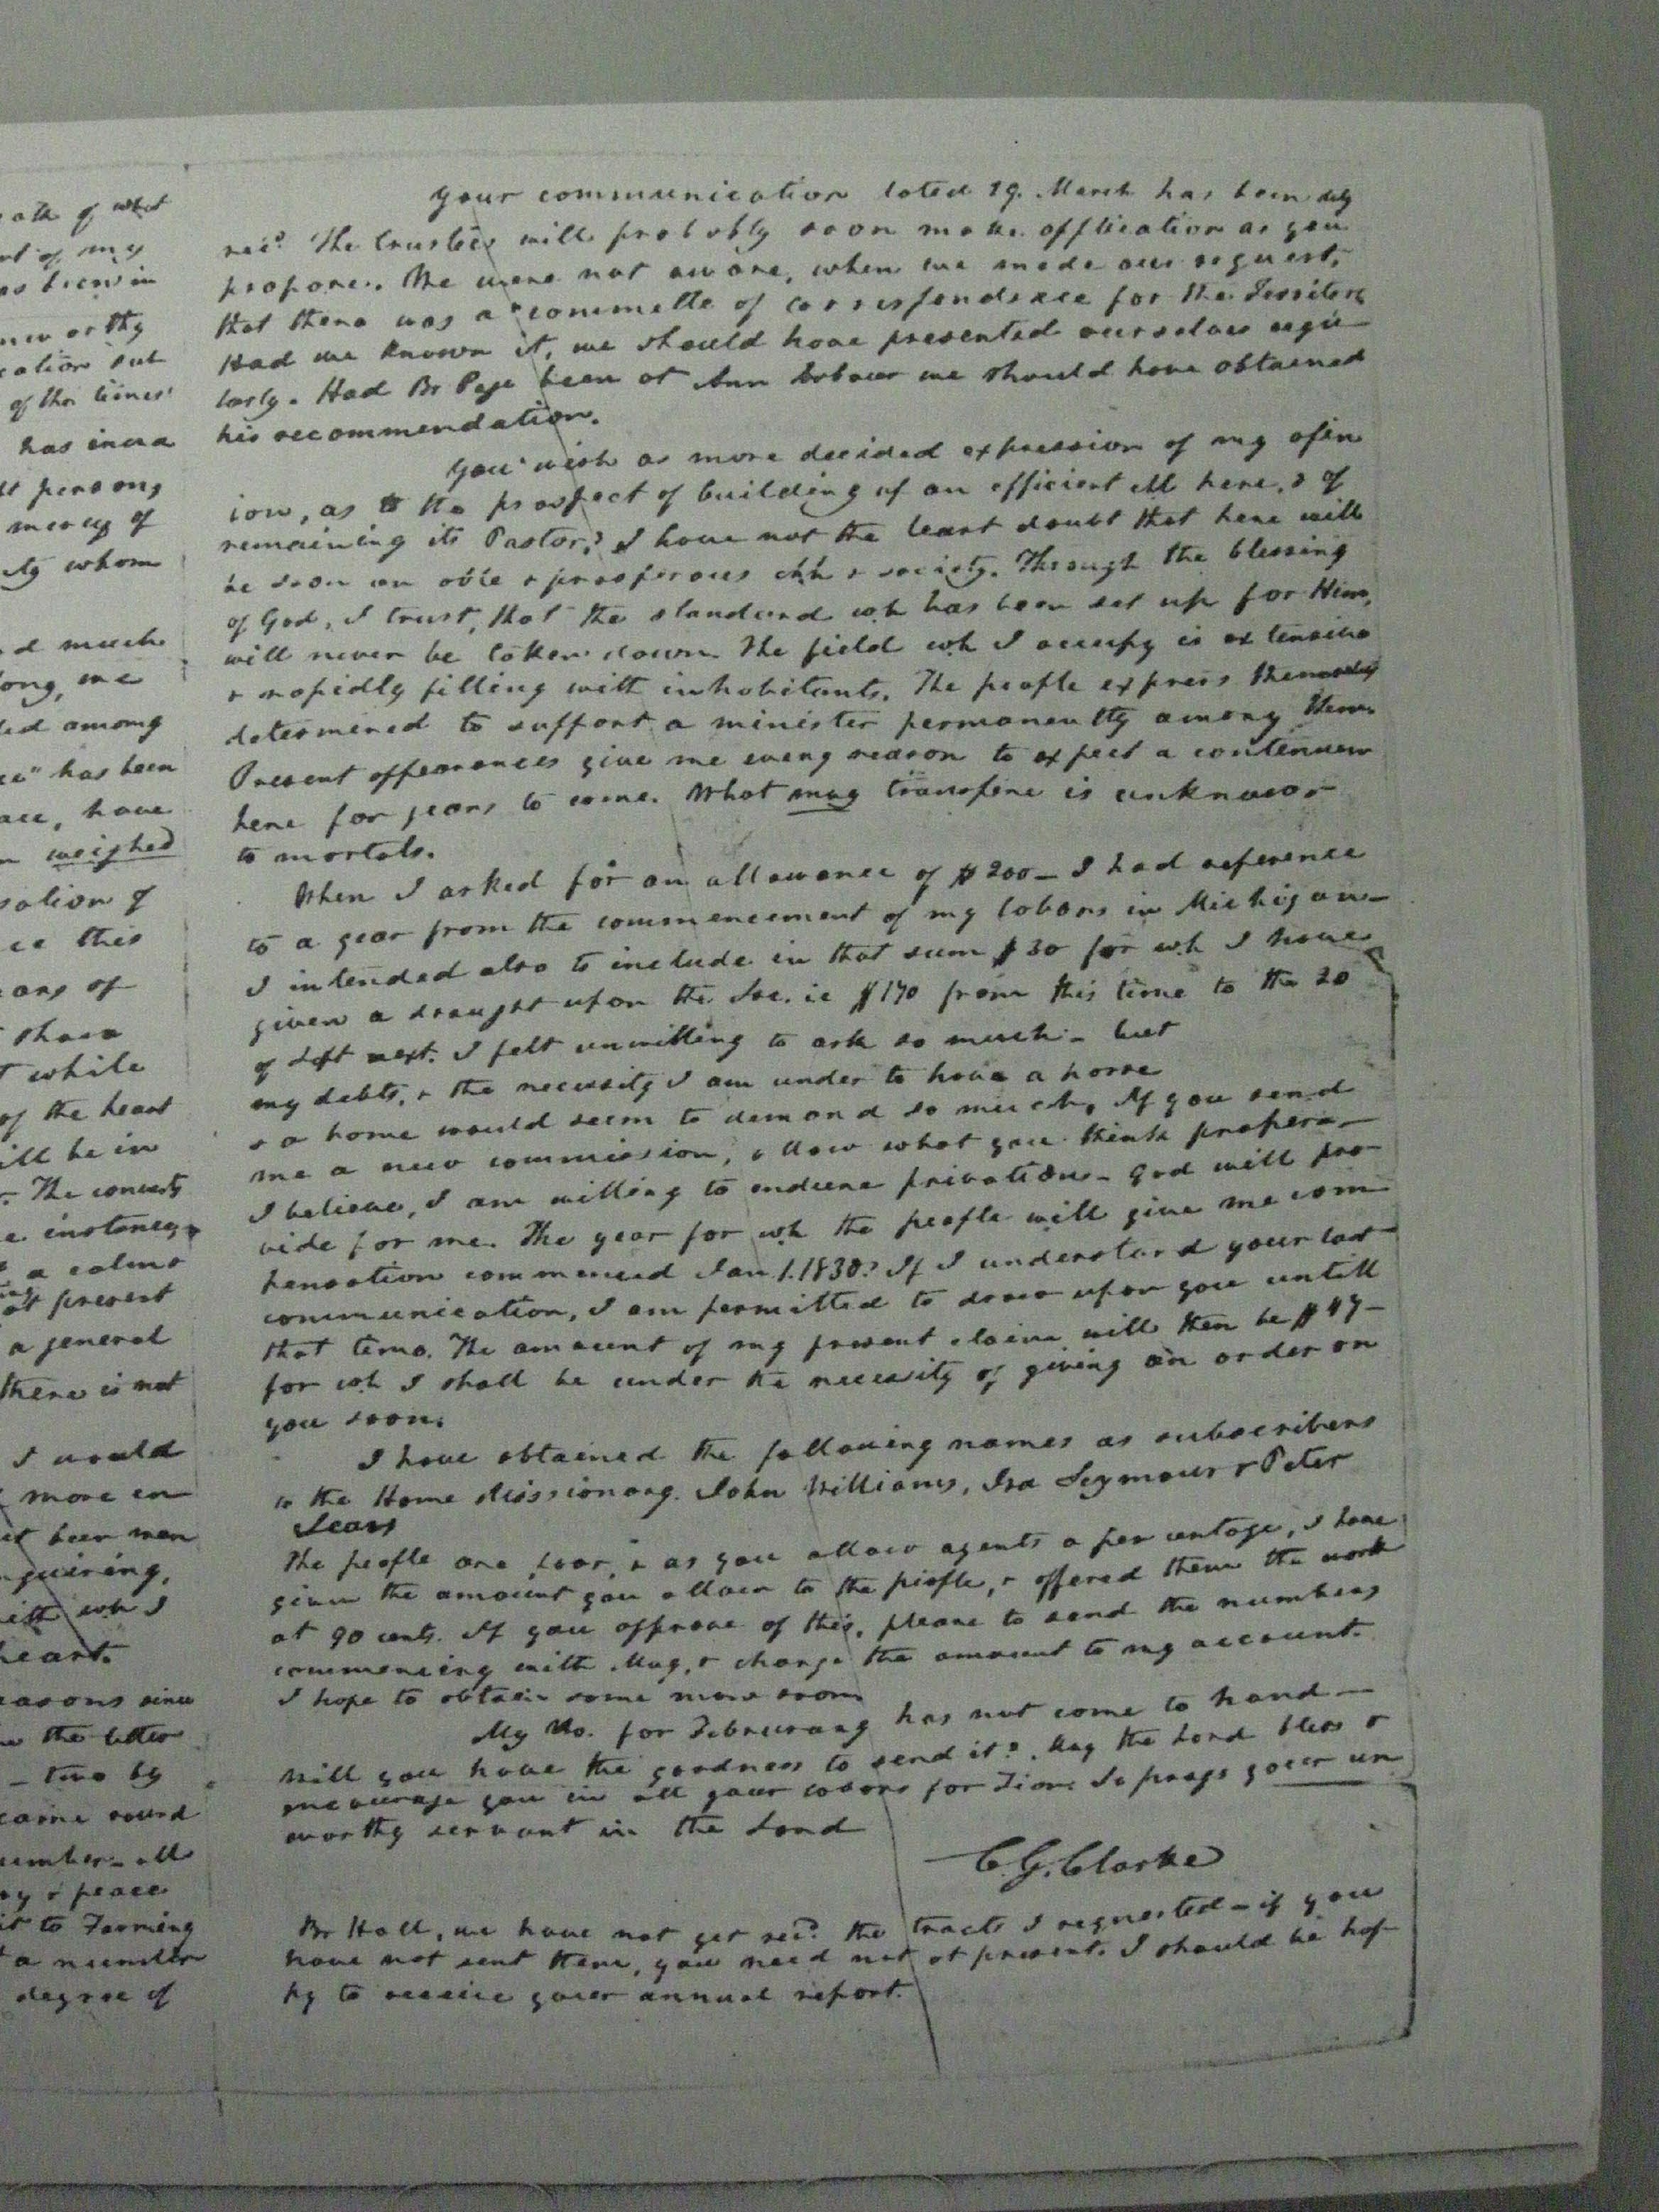 oath of what
nt of my
as been in
nworthy
cation sub
of the times
has increa
st persons
mercy of
ly whom
d much
long, we
ded among
ce" has been
ace, have
n weighed
sation of
ce this
ears of
share
t while
of the heart
ill be in
The converts
e instances
a calmer
at present
a general
there is not
I would
more en
et been men
nquiring,
with wh I
heart.
easons since
the latter
- two by
came round
number - all
oy & peace
it to Farming
t a number
degree of
Your communication dated 19. March has been duly
recd. The trustees will probably soon make application as you
propose. We were not aware, when we made our request,
that there was a committe of correspondence for the Territory
Had we known it, we should have presented ourselves regu
larly. Had Br Page been at Ann Arbour we should have obtained
his recommendation.
You wish a more decided expression of my opin
ion, as to the prospect of building up an efficient chh here, & of
remaining its Pastor. I have not the least doubt that here will
be soon an able & prosperous chh & society. Through the blessing
of God, I trust, that the standard wh has been set up for Him,
will never be taken down. The field wh I occupy is extensive
& rapidly filling with inhabitants. The people express themselves
determined to support a minister permanently among them
Present appearances give me every reason to expect a continuen
here for years to come. What may transpire is unknown
to mortals.
When I asked for an allowance of $200 - I had reference
to a year from the commencement of my labors in Michigan -
I intended also to include in that sum $30 for wh I have
given a draught upon the Soc. ie $170 from this time to the 20
of Sept next. I felt unwilling to ask so much - but
my debts, & the necessity I am under to have a horse
& a home would seem to demand so much. If you send
me a new commission, allow what you think proper -
I believe, I am willing to endure privations - God will pro
vide for me. The year for wh the people will give me com
pensation commenced Jan 1. 1830. If I understand your last
communication, I am permitted to draw upon you untill
that time. The amount of my present claim will then be $47 -
for wh I shall be under the necessity of giving an order on
you soon.
I have obtained the following names as subscribers
to the Home Missionary. John Williams, Ira Seymour & Peter
Sears
The people are poor, & as you allow agents a per centage, I have
given the amount you allow to the people, & offered them the work
at 90 cents. If you approve of this, please to send the numbers
commencing with May, & charge the amount to my account.
I hope to obtain some more soon
My No. for Februrary has not come to hand -
Will you have the goodness to send it? May the Lord bless &
encourage you in all your labors for Zion. So prays your un
worthy servant in the Lord
C. G. Clarke
Br Hall, we have not yet recd. the tracts I requested - if you
have not sent them, you need not at present. I should be hap
py to receive your annual report.